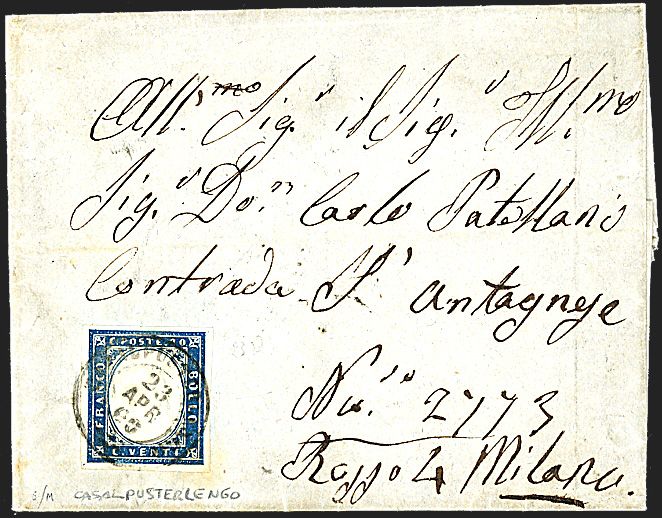 All.mo Sig.r il Sig.r Ill.mo
Sig.r Do.n Carlo Patellani
Contrada S' Antagnese
Nu.o 2773
Rosso 4 Milano.
C. POSTE 20
FRANCO BOLLO
C. VENTI
23
APR
60
S/M CASALPUSTERLENGO